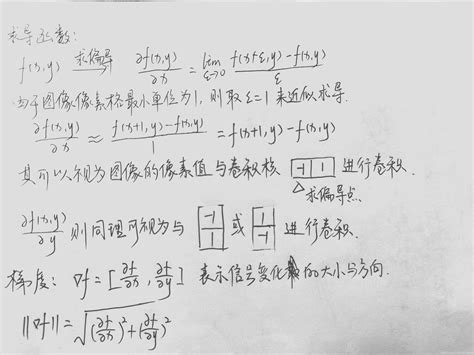 求导函数:
f(x,y) 求偏导→ ∂f(x,y)/∂x = lim ε→0 f(x+ε,y)-f(x,y)/ε
由于图像像素格最小单位为1, 则取ε=1来近似求导.
∂f(x,y)/∂x ≈ f(x+1,y)-f(x,y)/1 = f(x+1,y)-f(x,y)
其可以视为图像的像素值与卷积核 [-1 | 1] 进行卷积.
△求偏导点.
∂f(x,y)/∂y 则同理可视为与 [-1 / 1] 或 [1 / -1] 进行卷积.
梯度: ∇f = [∂f/∂x, ∂f/∂y] 表示信号变化的大小与方向.
||∇f|| = √(∂f/∂x)²+(∂f/∂y)²